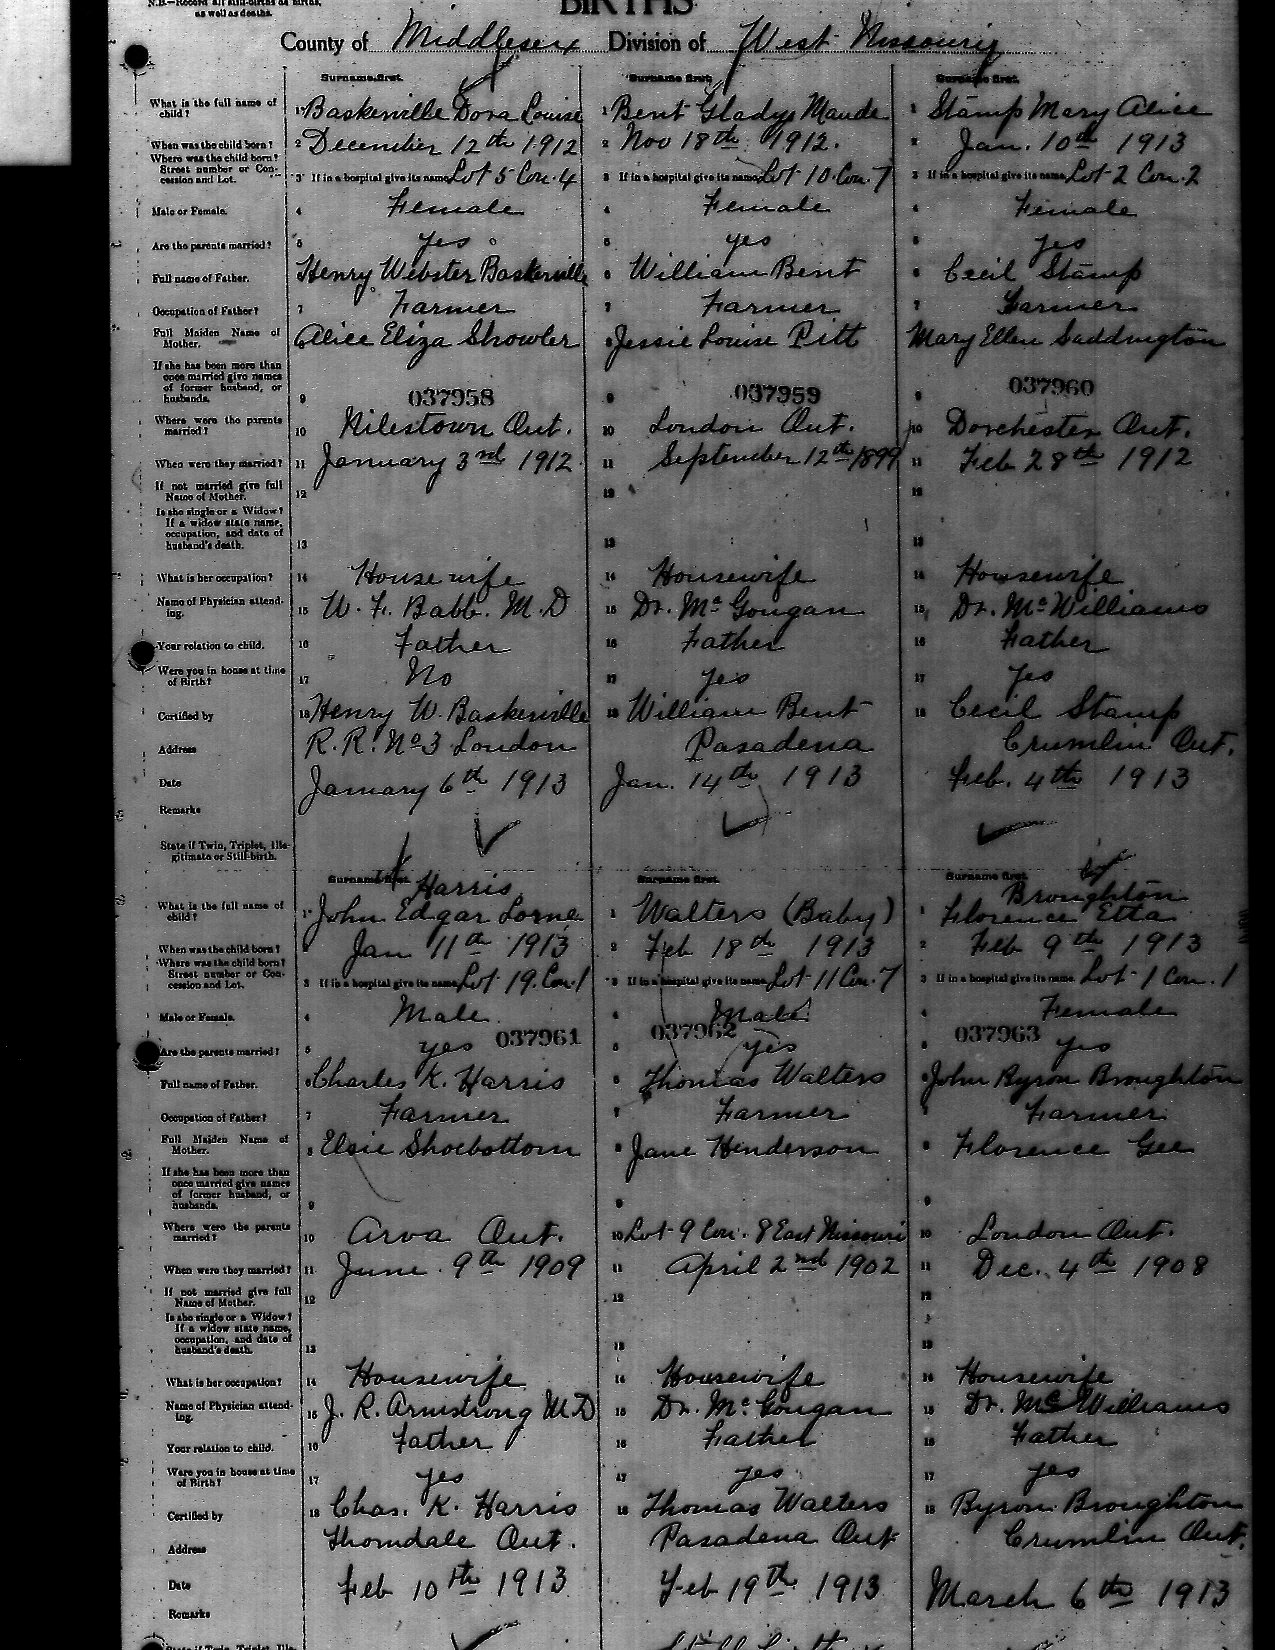 N.B.—Record all still-births as births,
as well as deaths.
BIRTHS
County of Middlesex Division of West Nissouri
Surname first. Surname first. Surname first.
What is the full name of child? 1 Baskerville Dora Louise 1 Bent Gladys Maude 1 Stamp Mary Alice
When was the child born? 2 December 12th 1912 2 Nov 18th 1912. 2 Jan. 10th 1913
Where was the child born? Street number or Concession and Lot. 3 If in a hospital give its name Lot 5 Con. 4 3 If in a hospital give its name Lot 10 Con. 7 3 If in a hospital give its name Lot 2 Con. 2
Male or Female. 4 Female 4 Female 4 Female
Are the parents married? 5 yes 5 yes 5 yes
Full name of Father. Henry Webster Baskerville 6 William Bent 6 Cecil Stamp
Occupation of Father? 7 Farmer 7 Farmer 7 Farmer
Full Maiden Name of Mother. 8 Alice Eliza Showler 8 Jessie Louise Pitt Mary Ellen Saddington
If she has been more than once married give names of former husband, or husbands. 9 037958 9 037959 9 037960
Where were the parents married? 10 Nilestown Ont. 10 London Ont. 10 Dorchester Ont.
When were they married? 11 January 3rd 1912 11 September 12th 1899 11 Feb 28th 1912
If not married give full Name of Mother. 12 12 12
Is she single or a Widow? If a widow state name, occupation, and date of husband's death. 13 13 13
What is her occupation? 14 Housewife 14 Housewife 14 Housewife
Name of Physician attending. 15 W. F. Babb. M.D 15 Dr. McGougan 15 Dr. McWilliams
Your relation to child. 16 Father 16 Father 16 Father
Were you in house at time of Birth? 17 No 17 yes 17 yes
Certified by 18 Henry W. Baskerville 18 William Bent 18 Cecil Stamp
Address R.R. No 3 London Pasadena Crumlin Ont.
Date January 6th 1913 Jan. 14th 1913 Feb. 4th 1913
Remarks
State if Twin, Triplet, Illegitimate or Still-birth.
Surname first. Harris Surname first. Surname first. Broughton
What is the full name of child? 1 John Edgar Lorne 1 Walters (Baby) 1 Florence Etta
When was the child born? Jan 11th 1913 2 Feb 18th 1913 2 Feb 9th 1913
Where was the child born? Street number or Concession and Lot. 3 If in a hospital give its name Lot 19. Con. 1 3 If in a hospital give its name Lot 11 Con. 7 3 If in a hospital give its name Lot 1 Con. 1
Male or Female. 4 Male 4 Male 4 Female
Are the parents married? 5 yes 037961 5 037962 yes 5 037963 yes
Full name of Father. 6 Charles K. Harris 6 Thomas Walters John Byron Broughton
Occupation of Father? 7 Farmer 7 Farmer Farmer
Full Maiden Name of Mother. 8 Elsie Shoebottom 8 Jane Henderson 8 Florence Gee
If she has been more than once married give names of former husband, or husbands. 9 9 9
Where were the parents married? 10 Arva Ont. 10 Lot 9 Con. 8 East Nissouri 10 London Ont.
When were they married? 11 June 9th 1909 11 April 2nd 1902 11 Dec. 4th 1908
If not married give full Name of Mother. 12 12 12
Is she single or a Widow? If a widow state name, occupation, and date of husband's death. 13 13 13
What is her occupation? 14 Housewife 14 Housewife 14 Housewife
Name of Physician attending. 15 J. R. Armstrong M.D 15 Dr. McGougan 15 Dr. McWilliams
Your relation to child. 16 Father 16 Father 16 Father
Were you in house at time of Birth? 17 yes 17 yes 17 yes
Certified by 18 Chas. K. Harris 18 Thomas Walters 18 Byron Broughton
Address Thorndale Ont. Pasadena Ont Crumlin Ont.
Date Feb 10th 1913 Feb 19th 1913 March 6th 1913
Remarks